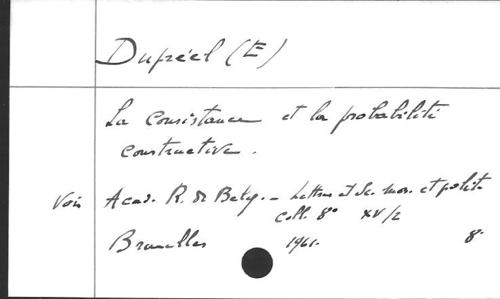 Dupréel (E)
La Consistance et la probabilité
constructive.
Voir Acad. R. de Belg. - Lettres et Sc. mor. et polit.
Coll. 8° XV/2
Bruxelles 1961. 8°